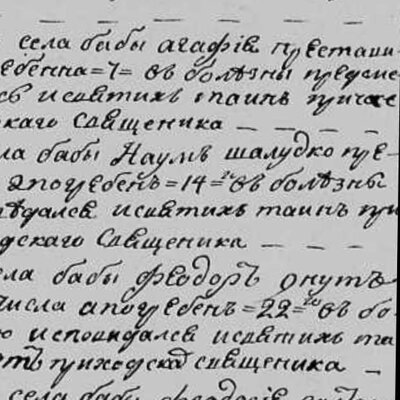 села бабы агафіѧ престави
ребенна =7= въ болѣзны предис
лсѧ исвѧтихъ таинъ причас
скаго священика
ла бабы Наумъ шалудко пре-
апогребенъ =14= въ болѣзны
вѣдалсѧ исвѧтихъ таинъ при
дскаго священика
ела бабы феодоръ онутъ
числа апогребенъ =22= въ бо
ю исповидалсѧ исвѧтихъ та
отъ приходскаго священика
села бабы